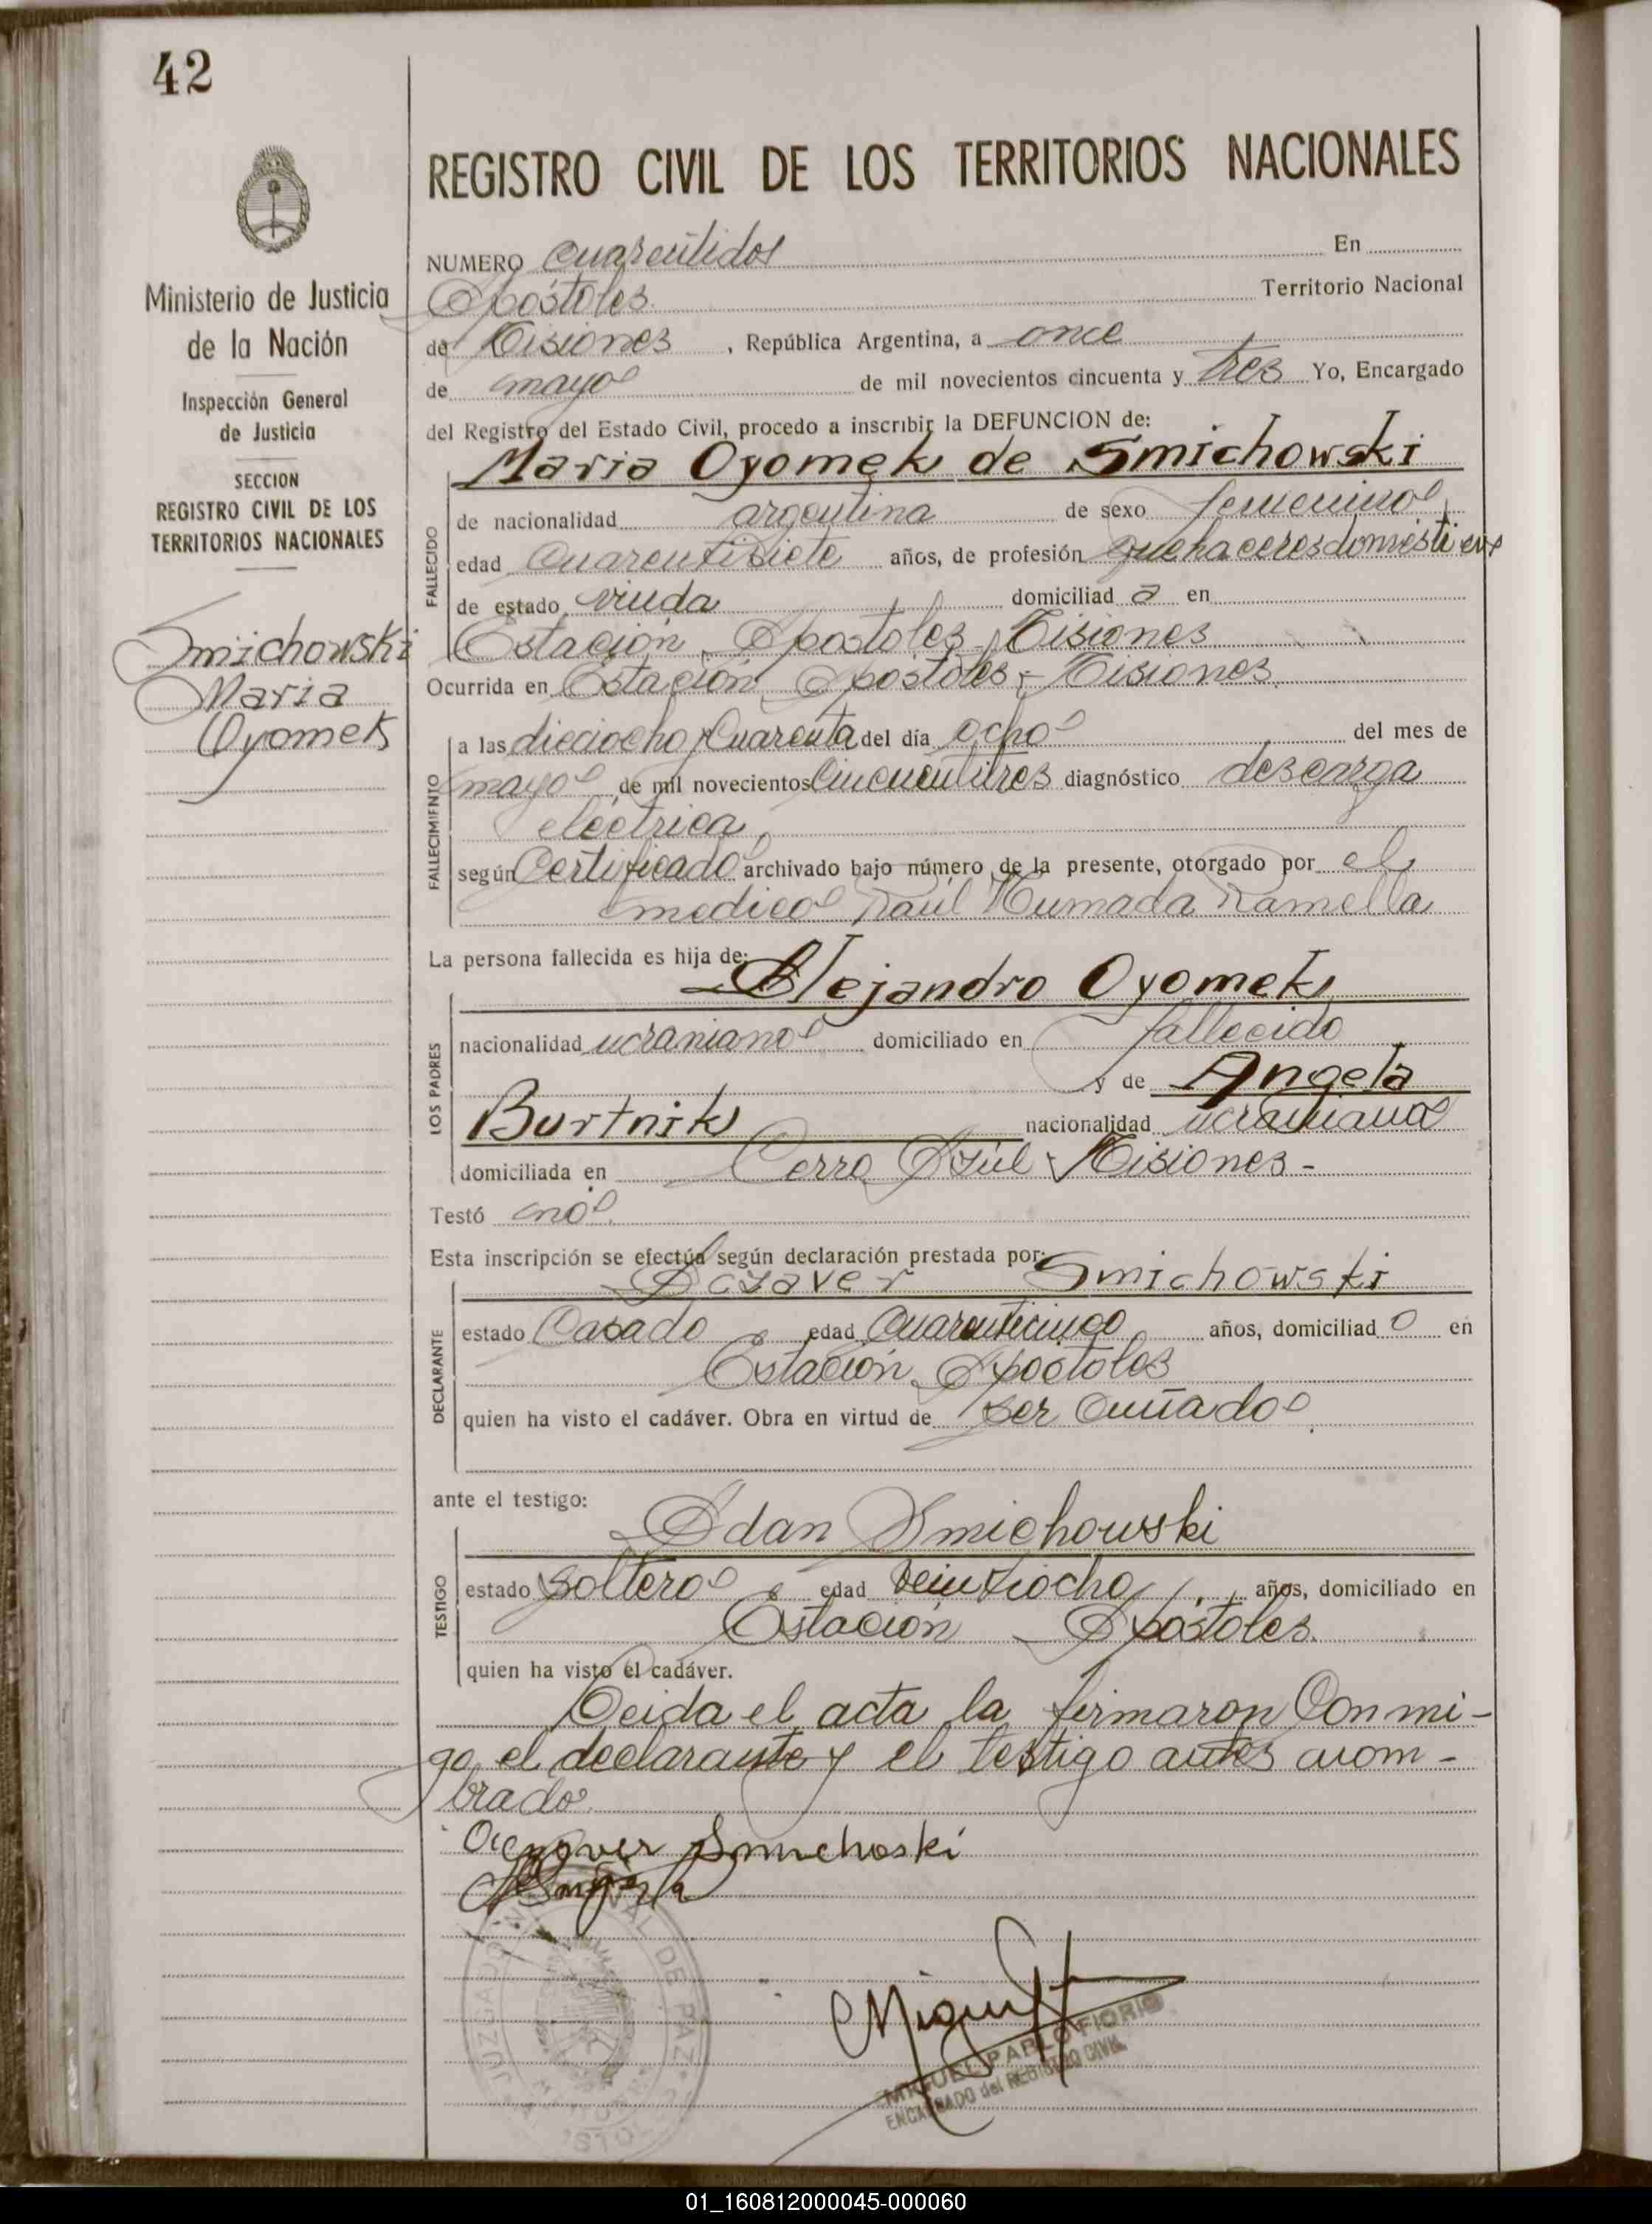 42
REGISTRO CIVIL DE LOS TERRITORIOS NACIONALES
Ministerio de Justicia
de la Nación
Inspección General
de Justicia
SECCION
REGISTRO CIVIL DE LOS
TERRITORIOS NACIONALES
Smichowski
Maria
Oyomek
NUMERO cuarentidos En
Apóstoles Territorio Nacional
de Misiones, República Argentina, a once
de mayo de mil novecientos cincuenta y tres Yo, Encargado
del Registro del Estado Civil, procedo a inscribir la DEFUNCION de:
Maria Oyomek de Smichowski
FALLECIDO
de nacionalidad argentina de sexo femenino
edad cuarentisiete años, de profesión quehaceres domesticos
de estado viuda domiciliad a en
Estación Apostoles - Misiones
Ocurrida en Estación Apostoles - Misiones
FALLECIMIENTO
a las dieciocho y cuarenta del día ocho del mes de
mayo de mil novecientos cincuentitres diagnóstico descarga
eléctrica
según Certificado archivado bajo número de la presente, otorgado por el
medico Raúl Humada Ramella
La persona fallecida es hija de:
Alejandro Oyomek
LOS PADRES
nacionalidad ucraniano domiciliado en fallecido
y de Angela
Burtnik nacionalidad ucraniana
domiciliada en Cerro Azúl - Misiones -
Testó no
Esta inscripción se efectúa según declaración prestada por:
Smichowski
DECLARANTE
estado Casado edad cuarenticinco años, domiciliad o en
Estación Apóstoles
quien ha visto el cadáver. Obra en virtud de ser cuñado
ante el testigo:
Adan Smichowski
TESTIGO
estado soltero edad veintiocho años, domiciliado en
Estación Apóstoles
quien ha visto el cadáver.
Leida el acta la firmaron conmi-
go el declarante y el testigo antes nom-
brado
Smichoski
JUZGADO DE PAZ
MIGUEL PABLO FIORIO
ENCARGADO del REGISTRO CIVIL
01_160812000045-000060